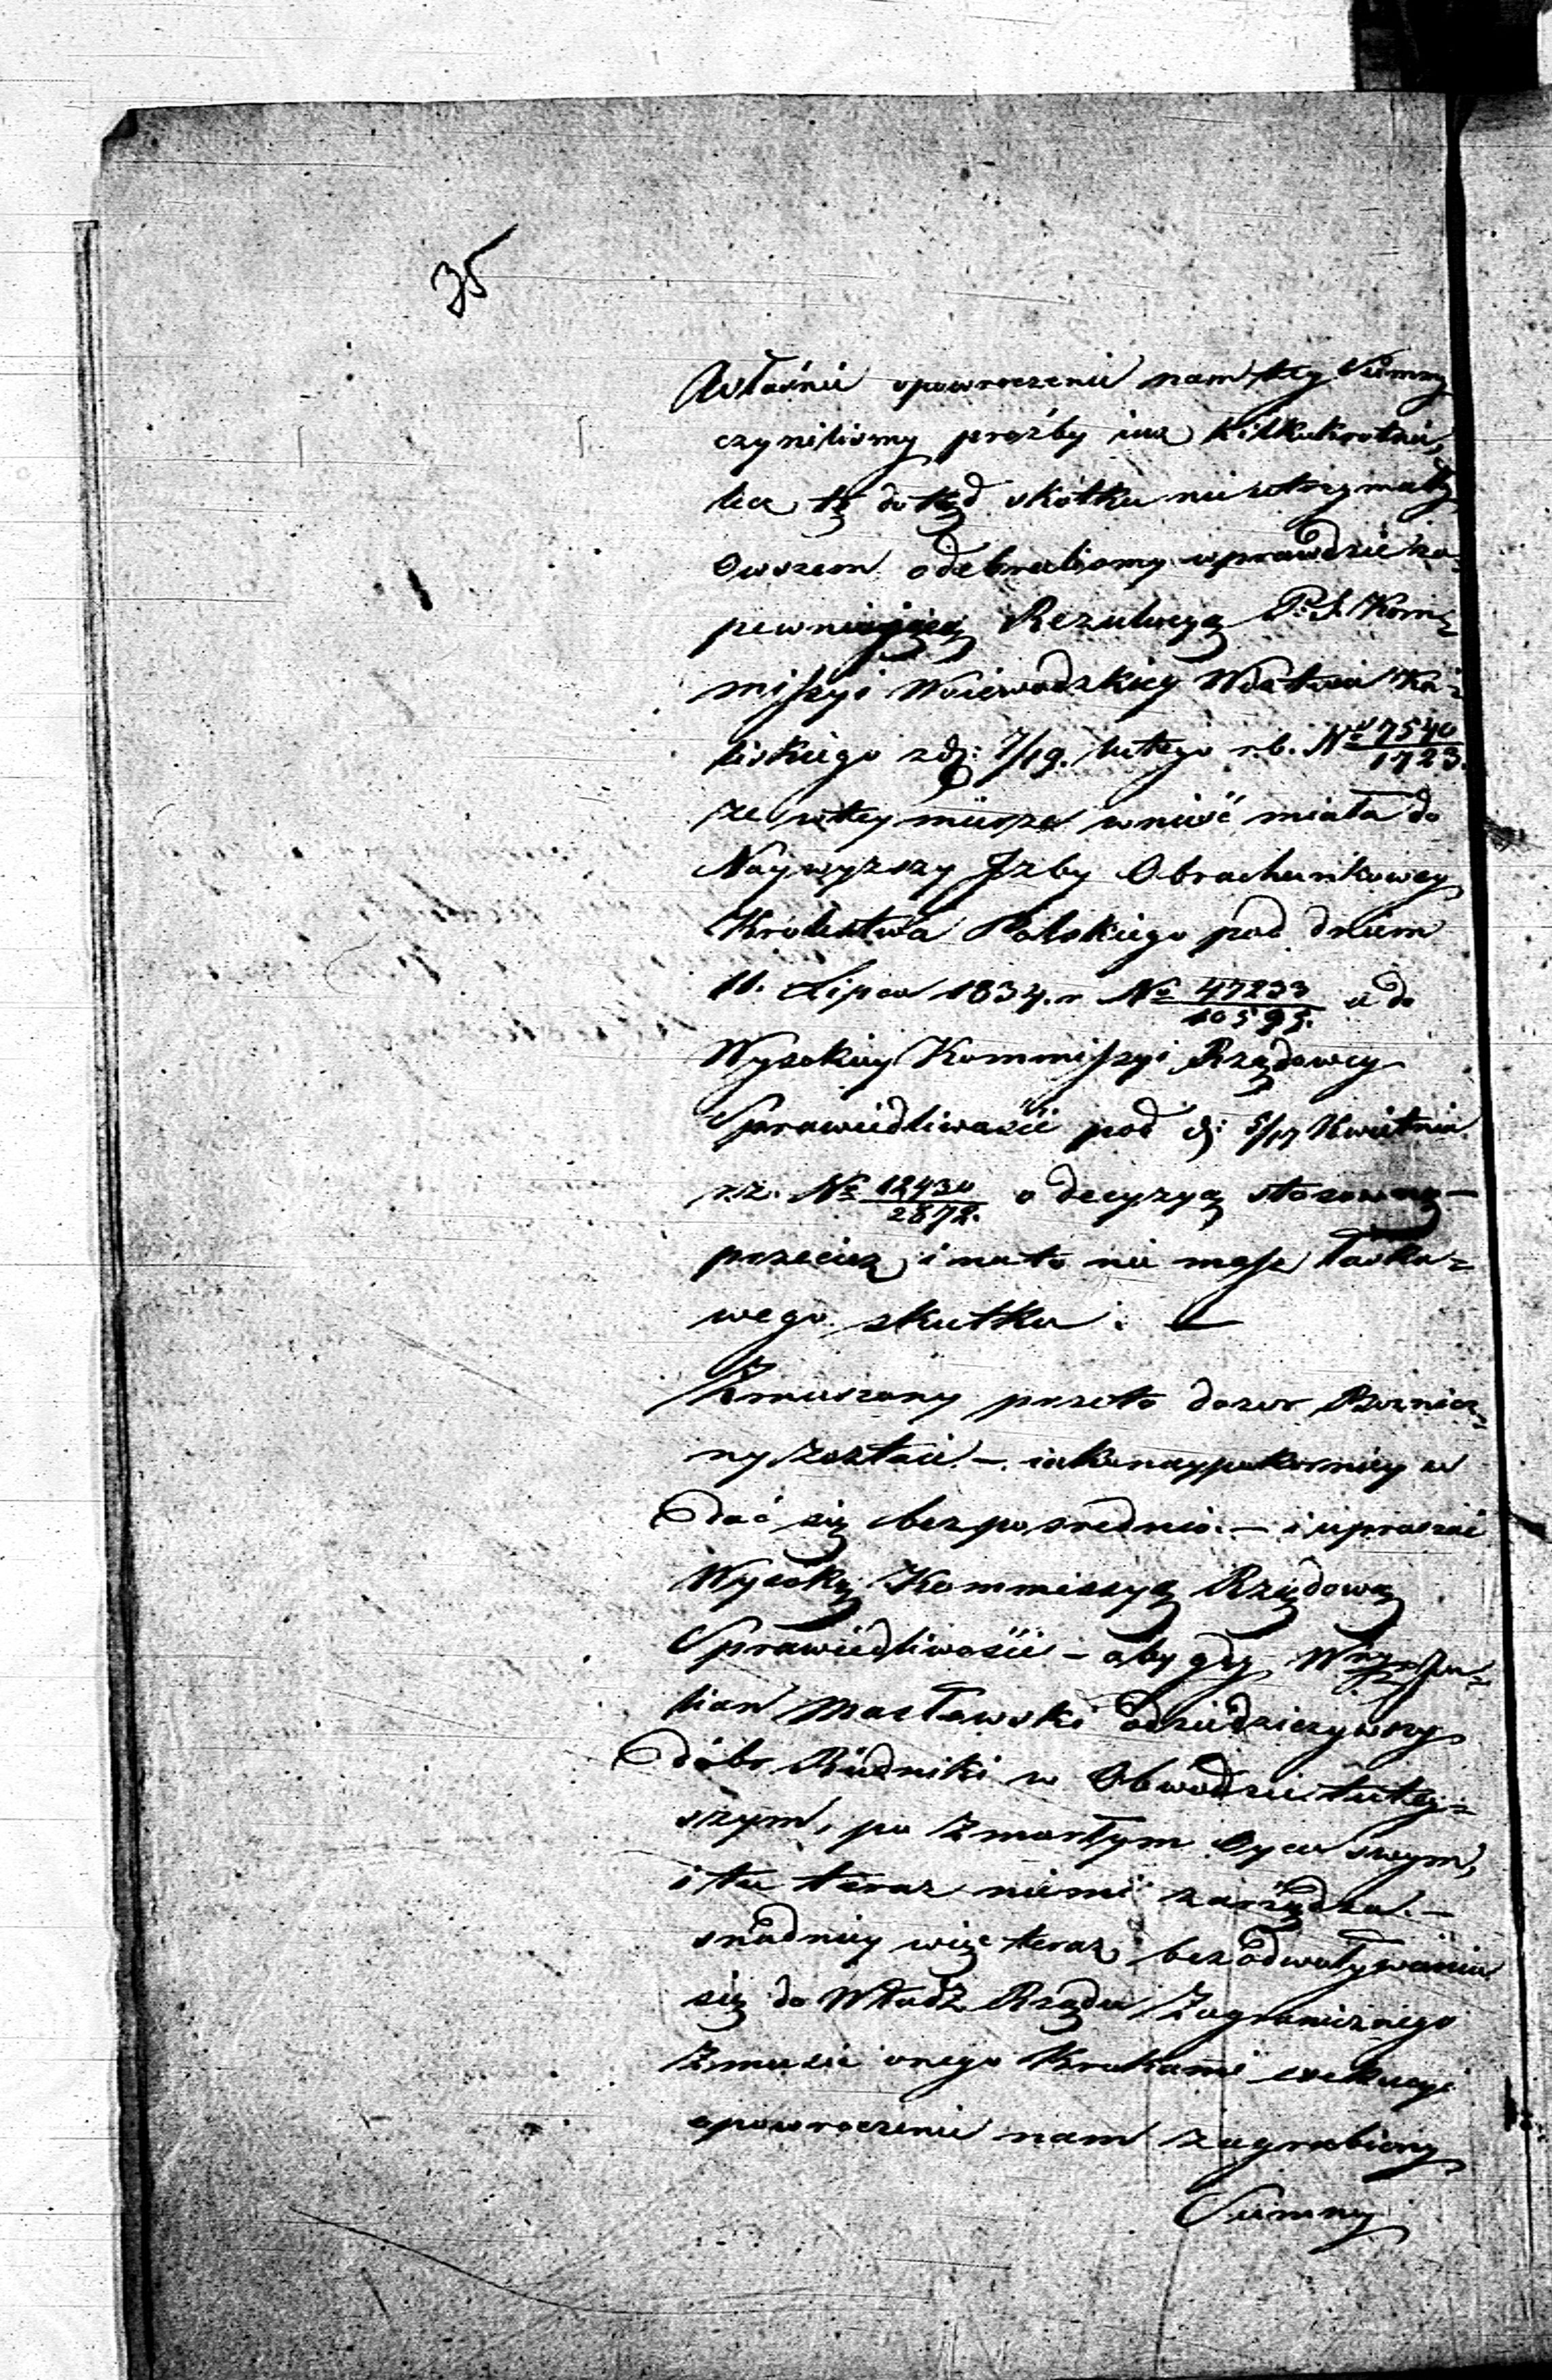 35
Właśnie opowrocenie nam tey Summy
czyniliśmy prożby iuż kilkukrotnie,
lecz tę dotąd skutku nie otrzymały
Owszem odebraliśmy wprawdzie za-
pewniaiącą Rezulucyą P. S. Kom=
missyi Woiewodzkiey Wdztwa Ka=
liskiego z dn: 7/19. lutego r.b. No 7540/1723.
że w tey mierze wnieść miała do
Naywyższy Izby Obrachunkowey
Królestwa Polskiego pod dniem
11. Lipca 1834. r No 47233/10595. a do
Wysokiey Kommissyi Rządowey
Sprawiedliwości pod d: 5/17 Kwietnia
r.z. No 12430/2872. o decyzyą stosowną —
przecież i na to nie masz łaska=
wego skutku. —
Zmuszony przeto dozor Bożnicz=
ny zostaie — iaknaypokorniey u
dać się bezpośrednio — i upraszać
Wysoką Kommissyą Rządową
Sprawiedliwości — aby gdy Wny Ju=
lian Masłowski odziedziczywszy
dobr Rudniki w Obwodzie tutey=
szym, po zmarłym Oycu swym,
i tu teraz niemi zarządza. —
snadniey więc teraz bez odwoływania
się do Władz Rządu Zagranicznego
Zmusić onego Krokami exekucyi
opowrocenie nam zagrabiony
Summy